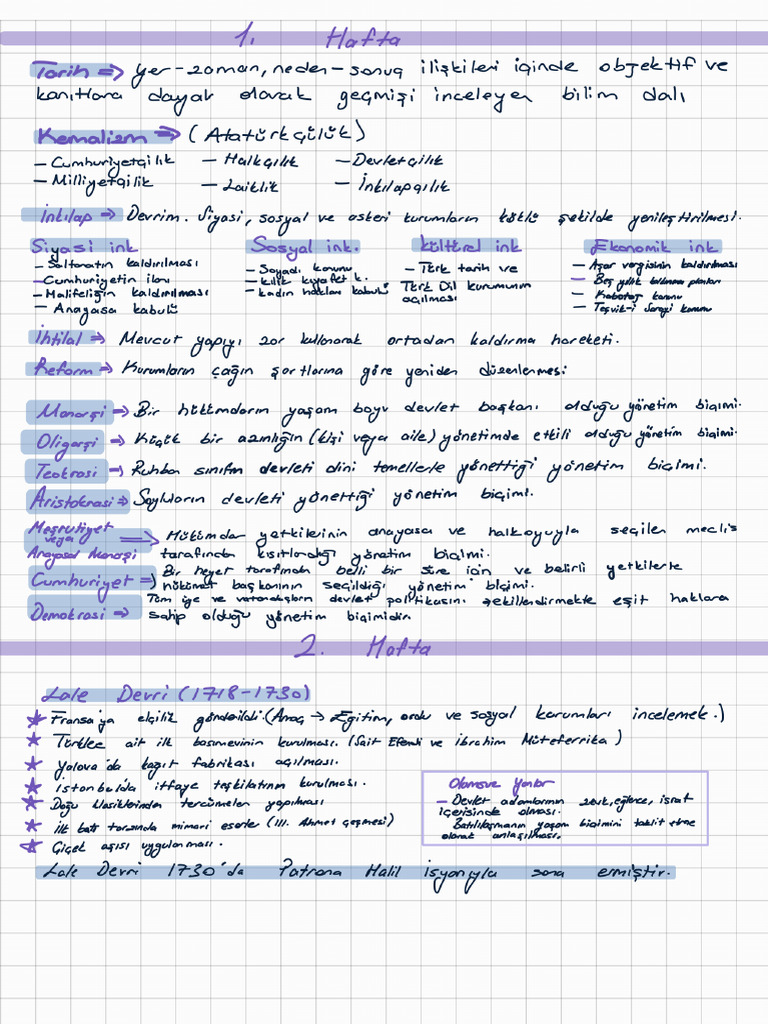 1. Hafta
Tarih => yer-zaman, neden-sonuç ilişkileri içinde objektif ve
kanıtlara dayalı olarak geçmişi inceleyen bilim dalı
Kemalizm => (Atatürkçülük)
- Cumhuriyetçilik - Halkçılık - Devletçilik
- Milliyetçilik - Laiklik - İnkılapçılık
İnkılap => Devrim. Siyasi, sosyal ve askeri kurumların köklü şekilde yenileştirilmesi.
Siyasi ink Sosyal ink. kültürel ink Ekonomik ink
- Saltanatın kaldırılması - Soyadı kanunu - Türk tarih ve - Aşar vergisinin kaldırılması
- Cumhuriyetin ilanı - kılık kıyafet k. Türk Dil kurumunun - Beş yıllık kalkınma planları
- Halifeliğin kaldırılması - kadın hakları kabulü açılması - Kabotaj kanunu
- Anayasa kabulü - Teşvik-i Sanayi kanunu
İhtilal => Mevcut yapıyı zor kullanarak ortadan kaldırma hareketi.
Reform => Kurumların çağın şartlarına göre yeniden düzenlenmesi
Monarşi => Bir hükümdarın yaşam boyu devlet başkanı olduğu yönetim biçimi.
Oligarşi -> Küçük bir azınlığın (kişi veya aile) yönetimde etkili olduğu yönetim biçimi.
Teokrasi -> Ruhban sınıfın devleti dini temellerle yönettiği yönetim biçimi.
Aristokrasi => Soyluların devleti yönettiği yönetim biçimi.
Meşrutiyet veya => Hükümdar yetkilerinin anayasa ve halkoyuyla seçilen meclis
Anayasal Monarşi tarafından kısıtlandığı yönetim biçimi.
Cumhuriyet => Bir heyet tarafından belli bir süre için ve belirli yetkilerle
hükümet başkanının seçildiği yönetim biçimi.
Demokrasi => Tüm üye ve vatandaşların devlet politikasını şekillendirmekte eşit haklara
sahip olduğu yönetim biçimidir.
2. Hafta
Lale Devri (1718-1730)
★ Fransa'ya elçilik gönderildi. (Amaç -> Eğitim, ordu ve sosyal kurumları incelemek.)
★ Türklere ait ilk basımevinin kurulması. (Sait Efendi ve İbrahim Müteferrika)
★ Yalova'da kağıt fabrikası açılması.
★ istanbulda itfaye teşkilatının kurulması.
★ Doğu klasiklerinden tercümeler yapılması
★ ilk batı tarzında mimari eserler (III. Ahmet Çeşmesi)
★ Çiçek aşısı uygulanması.
Olumsuz Yanlar
- Devlet adamlarının zevk, eğlence, israf
içerisinde olması.
Batılılaşmanın yaşam biçimini taklit etme
olarak anlaşılması.
Lale Devri 1730'da Patrona Halil isyanıyla sona ermiştir.